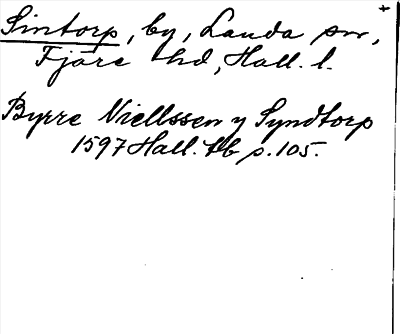 Sintorp, by, Landa sn,
Fjäre hd, Hall. l.
Byrre Niellssen y Syndtorp
1597 Hall. tb p. 105.